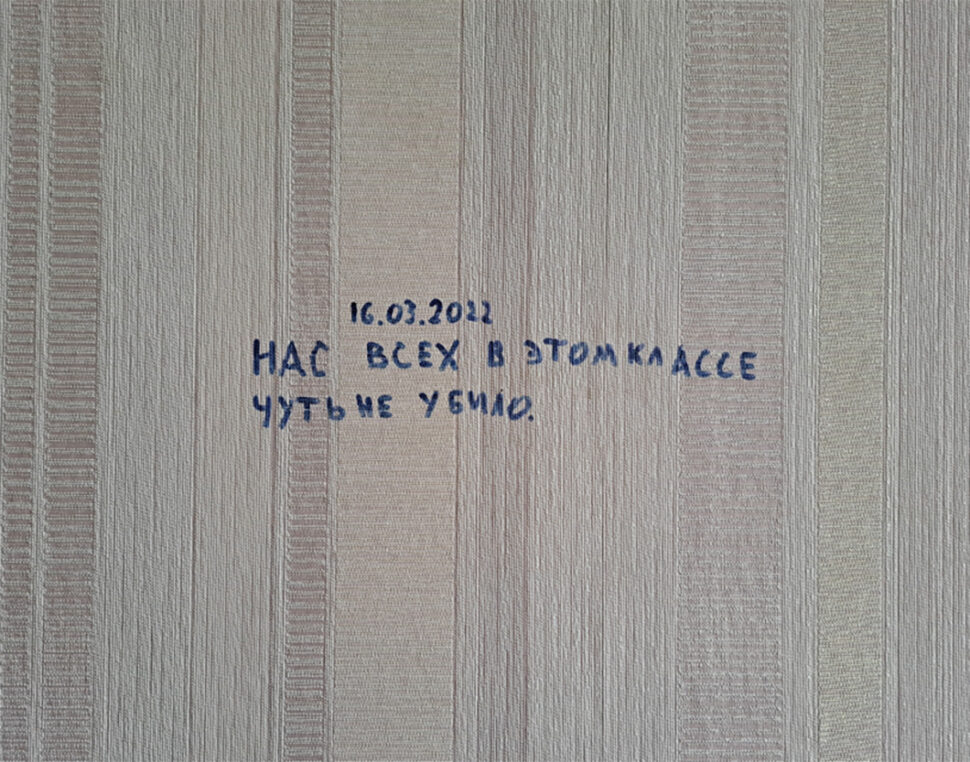 16.03.2022
НАС ВСЕХ В ЭТОМ КЛАССЕ
ЧУТЬ НЕ УБИЛО.